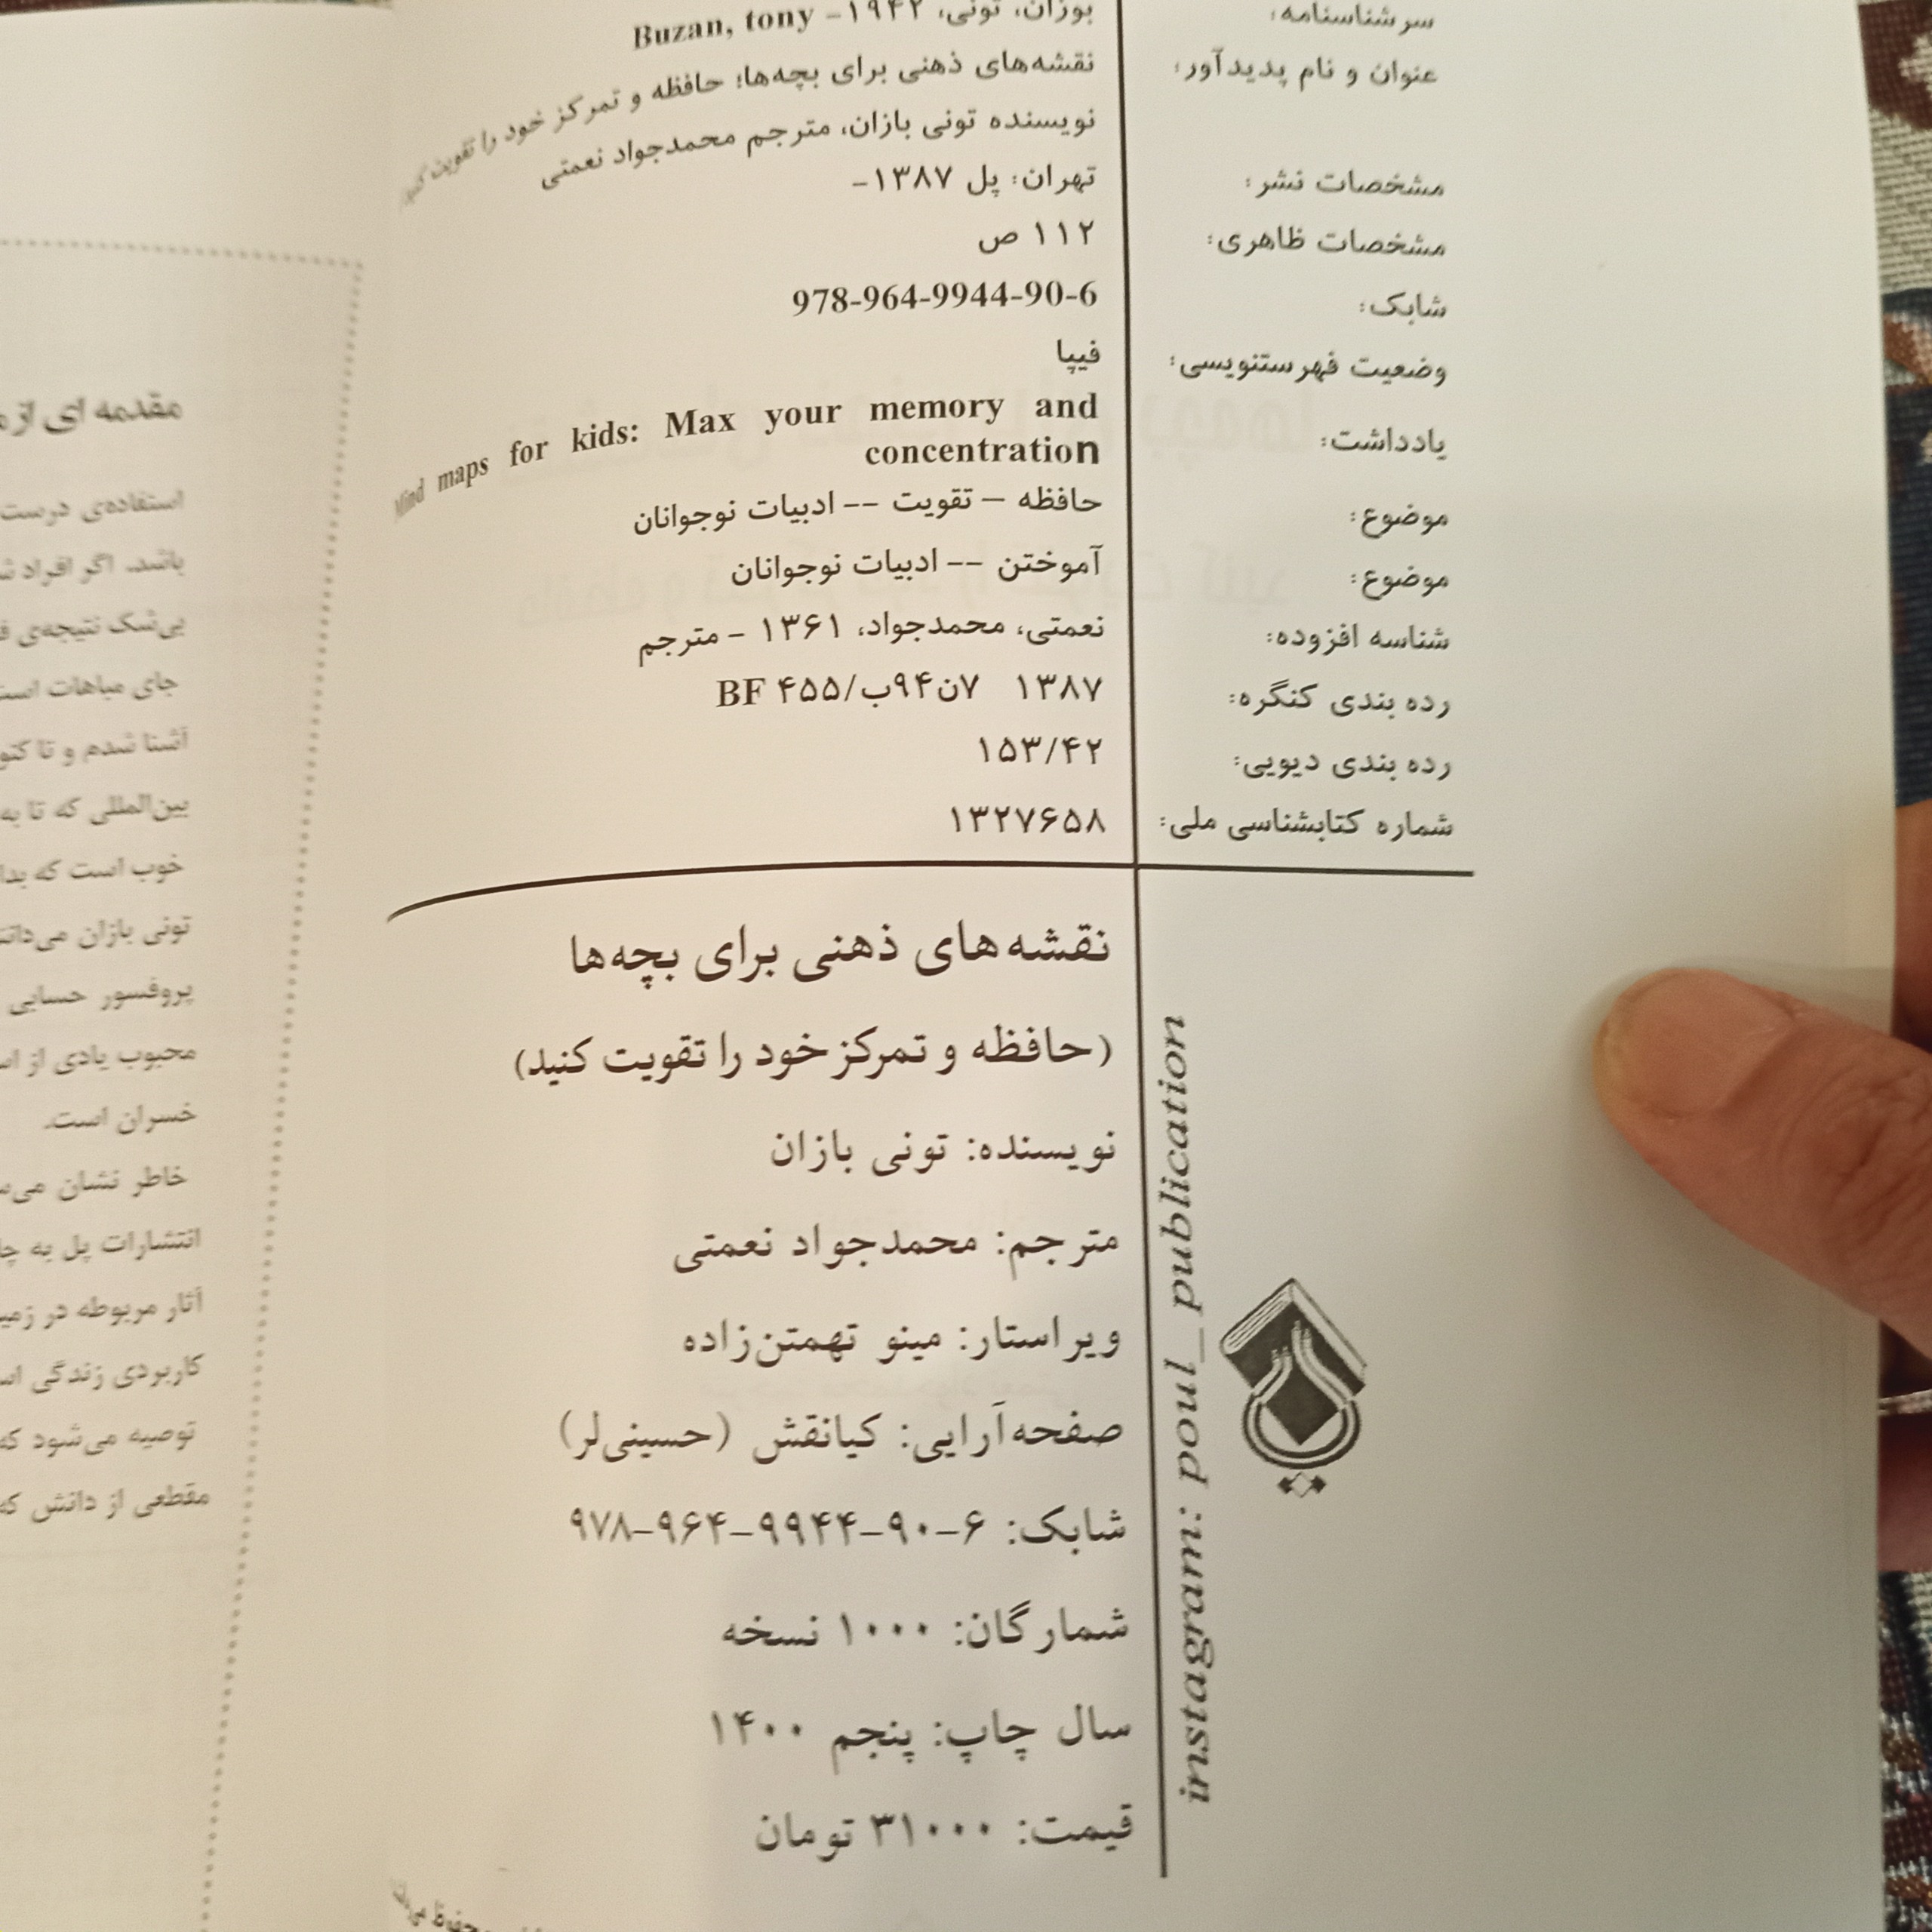 سرشناسنامه: بوزان، تونی، ۱۹۴۲- Buzan, tony
عنوان و نام پدیدآور: نقشه‌های ذهنی برای بچه‌ها؛ حافظه و تمرکز خود را تقویت کنید
نویسنده تونی بازان، مترجم محمدجواد نعمتی
مشخصات نشر: تهران: پل ۱۳۸۷-
مشخصات ظاهری: ۱۱۲ ص
شابک: 978-964-9944-90-6
وضعیت فهرستنویسی: فیپا
یادداشت: Mind maps for kids: Max your memory and
concentration
موضوع: حافظه – تقویت -- ادبیات نوجوانان
موضوع: آموختن -- ادبیات نوجوانان
شناسه افزوده: نعمتی، محمدجواد، ۱۳۶۱ - مترجم
رده بندی کنگره: ۱۳۸۷ ۷ن۹۴ب/BF ۴۵۵
رده بندی دیویی: ۱۵۳/۴۲
شماره کتابشناسی ملی: ۱۳۲۷۶۵۸
نقشه‌های ذهنی برای بچه‌ها
(حافظه و تمرکز خود را تقویت کنید)
نویسنده: تونی بازان
مترجم: محمدجواد نعمتی
ویراستار: مینو تهمتن‌زاده
صفحه‌آرایی: کیانقش (حسینی‌لر)
شابک: ۹۷۸-۹۶۴-۹۹۴۴-۹۰-۶
شمارگان: ۱۰۰۰ نسخه
سال چاپ: پنجم ۱۴۰۰
قیمت: ۳۱۰۰۰ تومان
instagram: poul_publication
مقدمه ای از
استفاده‌ی درست
باشد. اگر افراد
بی‌شک نتیجه‌ی
جای مباهات است
آشنا شدم و تا
بین‌المللی که تا به
خوب است که
تونی بازان
پروفسور حسابی
محبوب یادی از
خسران است.
خاطر نشان
انتشارات پل به
آثار مربوطه در
کاربردی زندگی
توصیه می‌شود که
مقطعی از دانش که